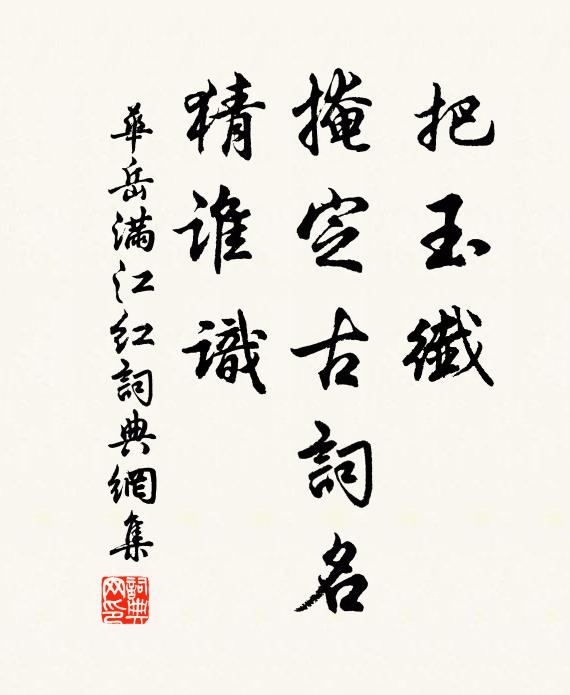 把玉纖
掩定古詞名
猜誰識
華岳滿江紅詞典網集
詞典網印